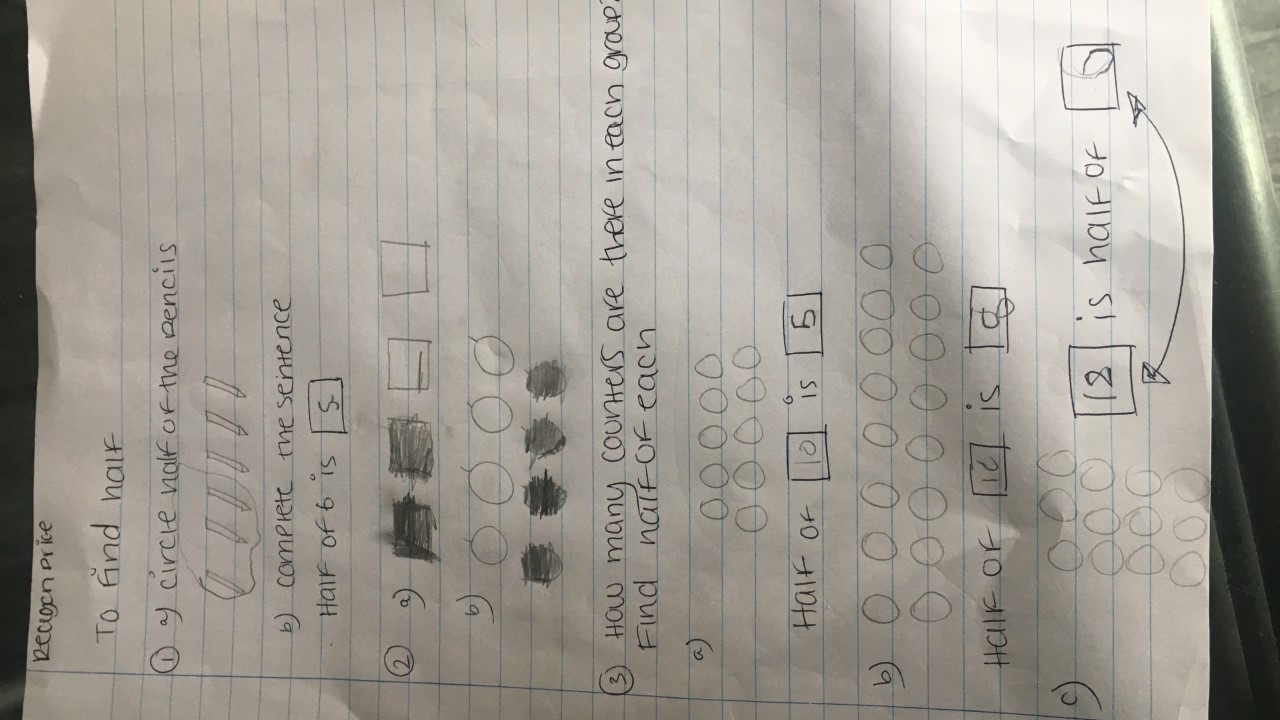 To find half
① a) circle half of the pencils
b) complete the seintence
Half of 6 is 5
② a)
b)
③ How many counters are there in each group?
Find half of each
a)
Half of 10 is 5
b)
Half of is 8
c) 12 is half of